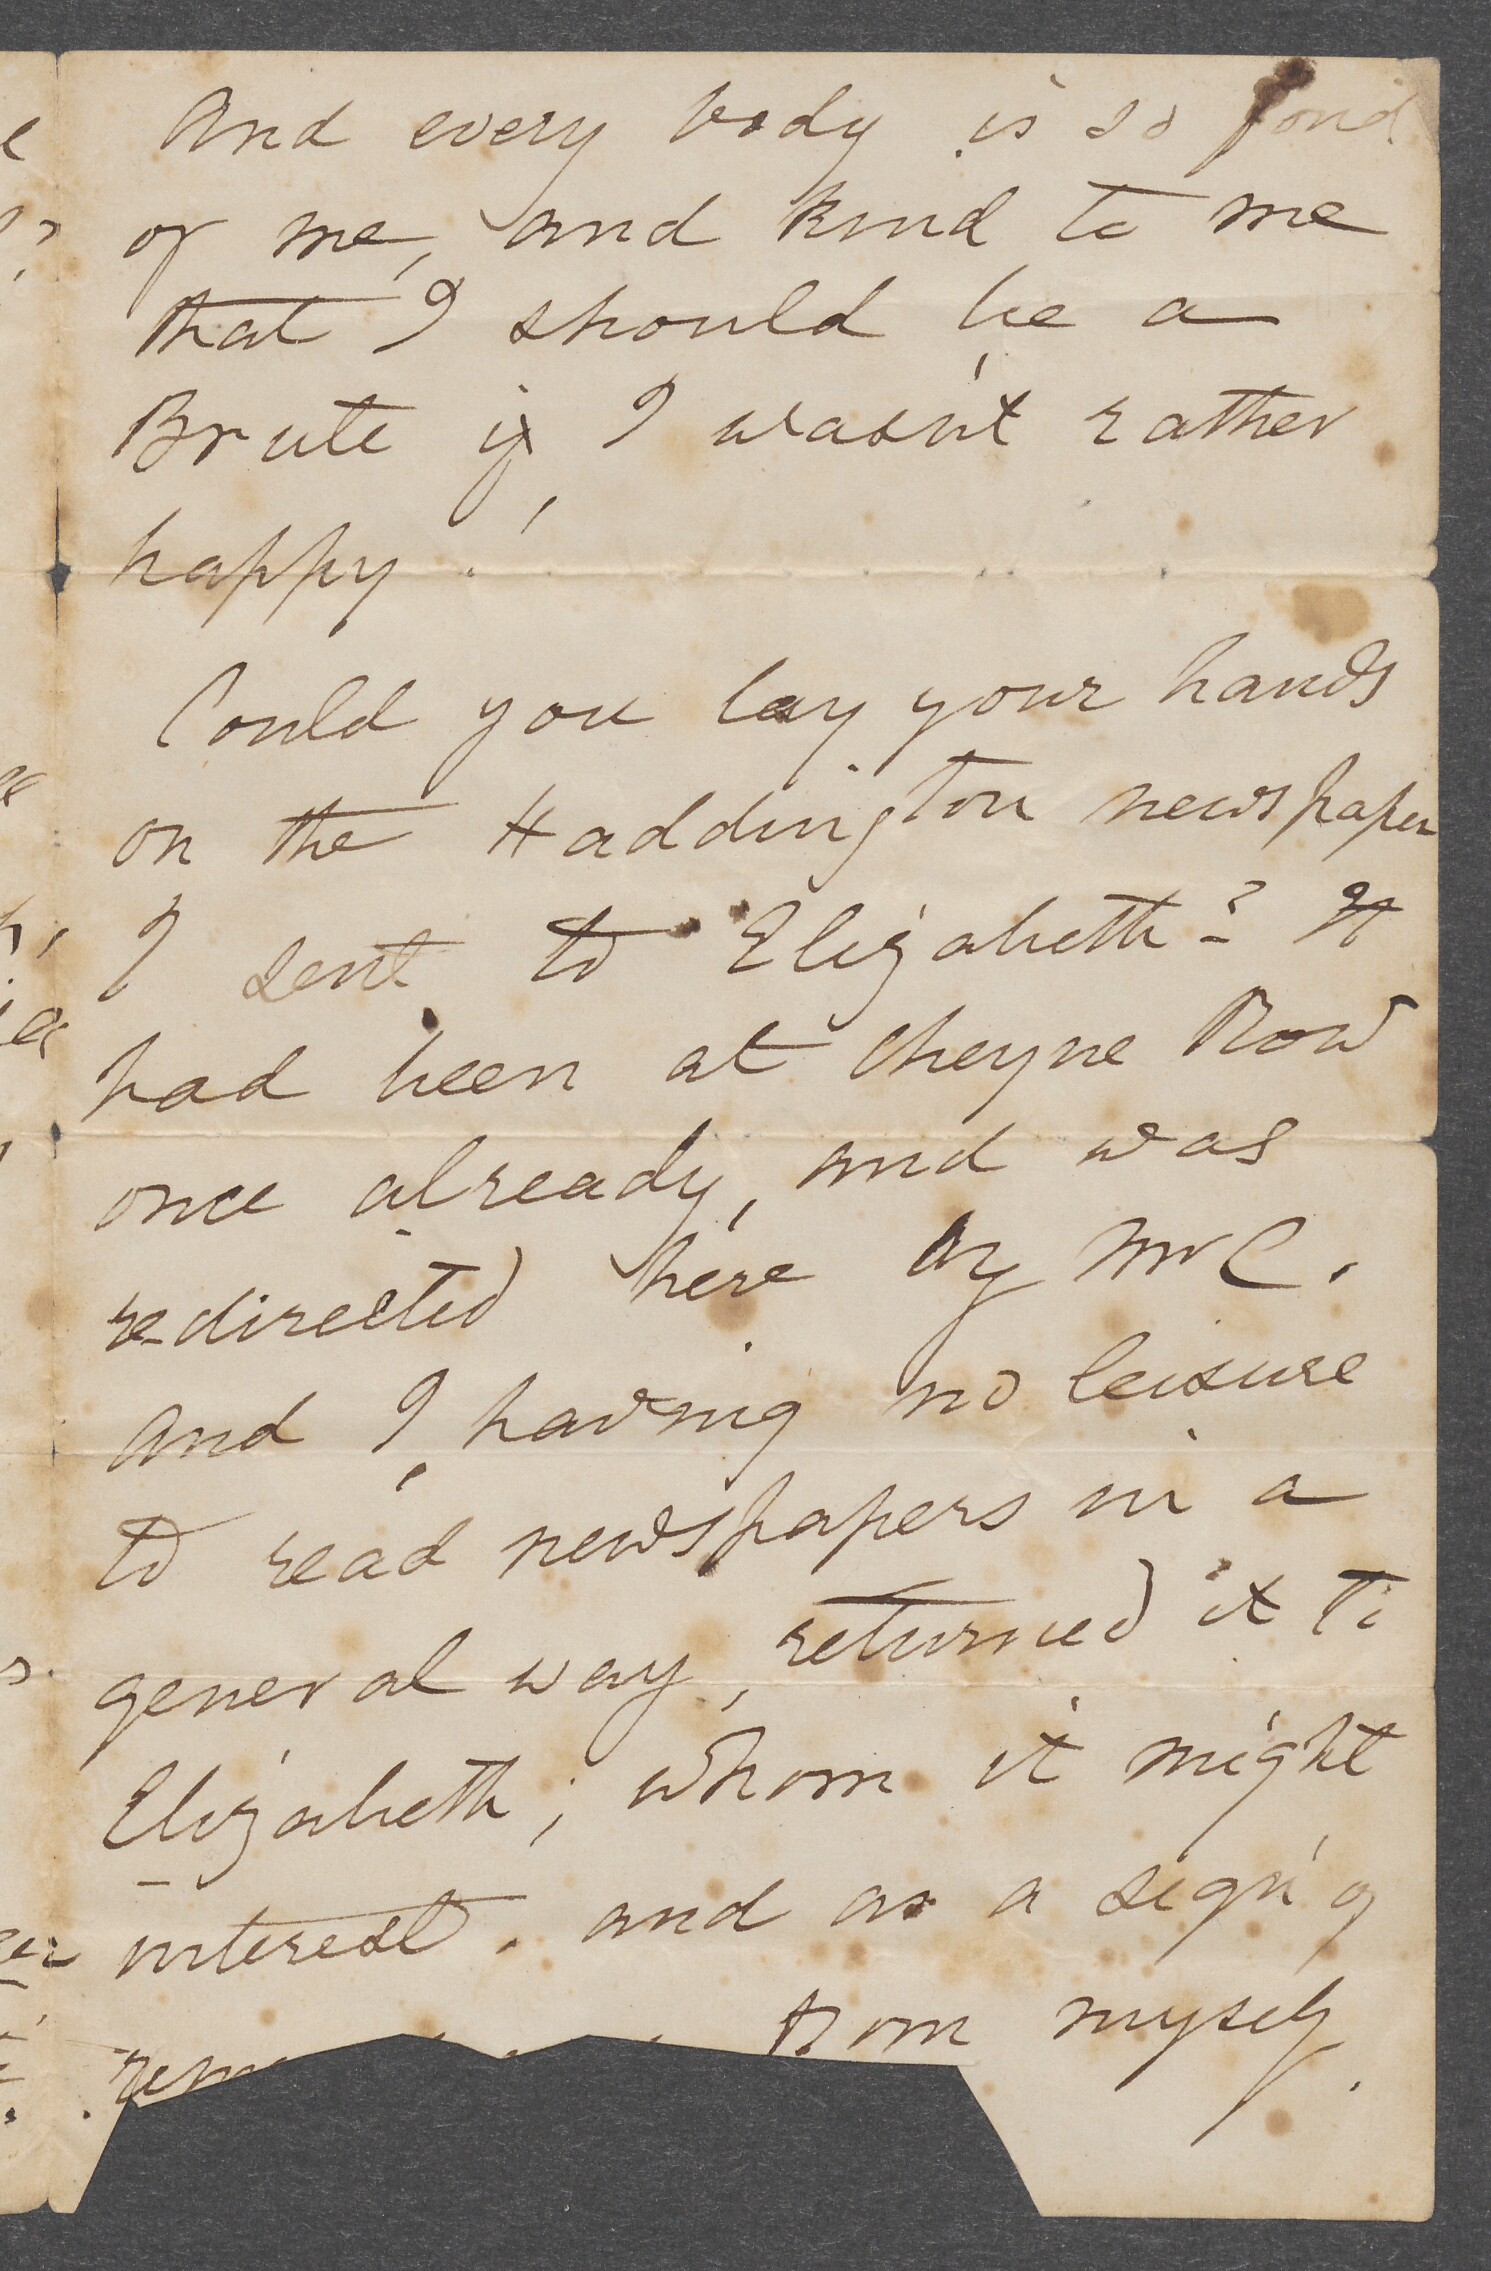 And every body is so fond
of me, and kind to me
that I should be a
Brute if I wasn't rather
happy!
Could you lay your hands
on the Haddington newspaper
I sent to Elizabeth? It
had been at Cheyne Row
once already, and was
redirected here by Mr C.
and I, having no leisure
to read newspapers in a
general way, returned it to
Elizabeth; whom it might
interest. and as a sign of
from myself.